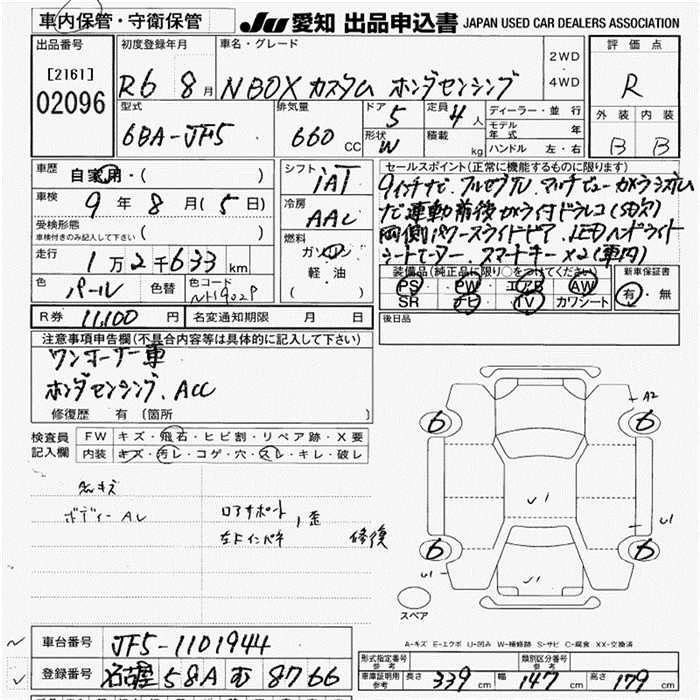 車内保管・守衛保管
JU 愛知 出品申込書 JAPAN USED CAR DEALERS ASSOCIATION
出品番号
[2161]
02096
初度登録年月
R6 8月
車名・グレード
N BOX カスタム ホンダセンシング
2WD
・
4WD
評価点
R
外装 内装
B B
型式
6BA-JF5
排気量
660 CC
ドア
5
形状
W
定員
4人
積載
kg
ディーラー・並行
モデル年式 年
ハンドル 左・右
車歴
自家用・( )
車検
9年8月(5日)
受検形態
車検付きのみ記入して下さい ( )
走行
1万2千633km
色
パール
色替
色コード
NH902P
シフト
IAT
冷房
AAC
燃料
ガソリン
軽・油
( )
セールスポイント(正常に機能するものに限ります)
9インチナビ フルセグTV マルチビューカメラシステム
ナビ連動前後カメラ付ドラレコ(SD欠)
両側パワースライドドア LEDヘッドライト
シートヒーター スマートキー×2(車内)
装備品(純正品に限り○をつけてください)
PS PW エアB AW
SR ナビ TV カワシート
新車保証書
有・無
R券 11,100円
名変通知期限 月 日
後日品
注意事項申告欄(不具合内容等は具体的に記入して下さい)
ワンオーナー車
ホンダセンシング、ACC
修復歴 有(箇所 )
検査員記入欄
FW キズ・飛石・ヒビ割・リペア跡・X要
内装 キズ・汚レ・コゲ・穴・スレ・キレ・破レ
ボディー AU
コアサポート
左下インパネ
、歪
修復
A2
6 6
U1
U1
6 6
U1
U1
スペア
A-キズ E-エクボ U-凹み W-補修跡 S-サビ C-腐食 XX-交換済
車台番号 JF5-1101944
登録番号 名古屋 58A む 8766
形式指定番号
参考
類別区分番号
参考
車庫証明用
参考
長さ 339cm
幅 147cm
高さ 179cm